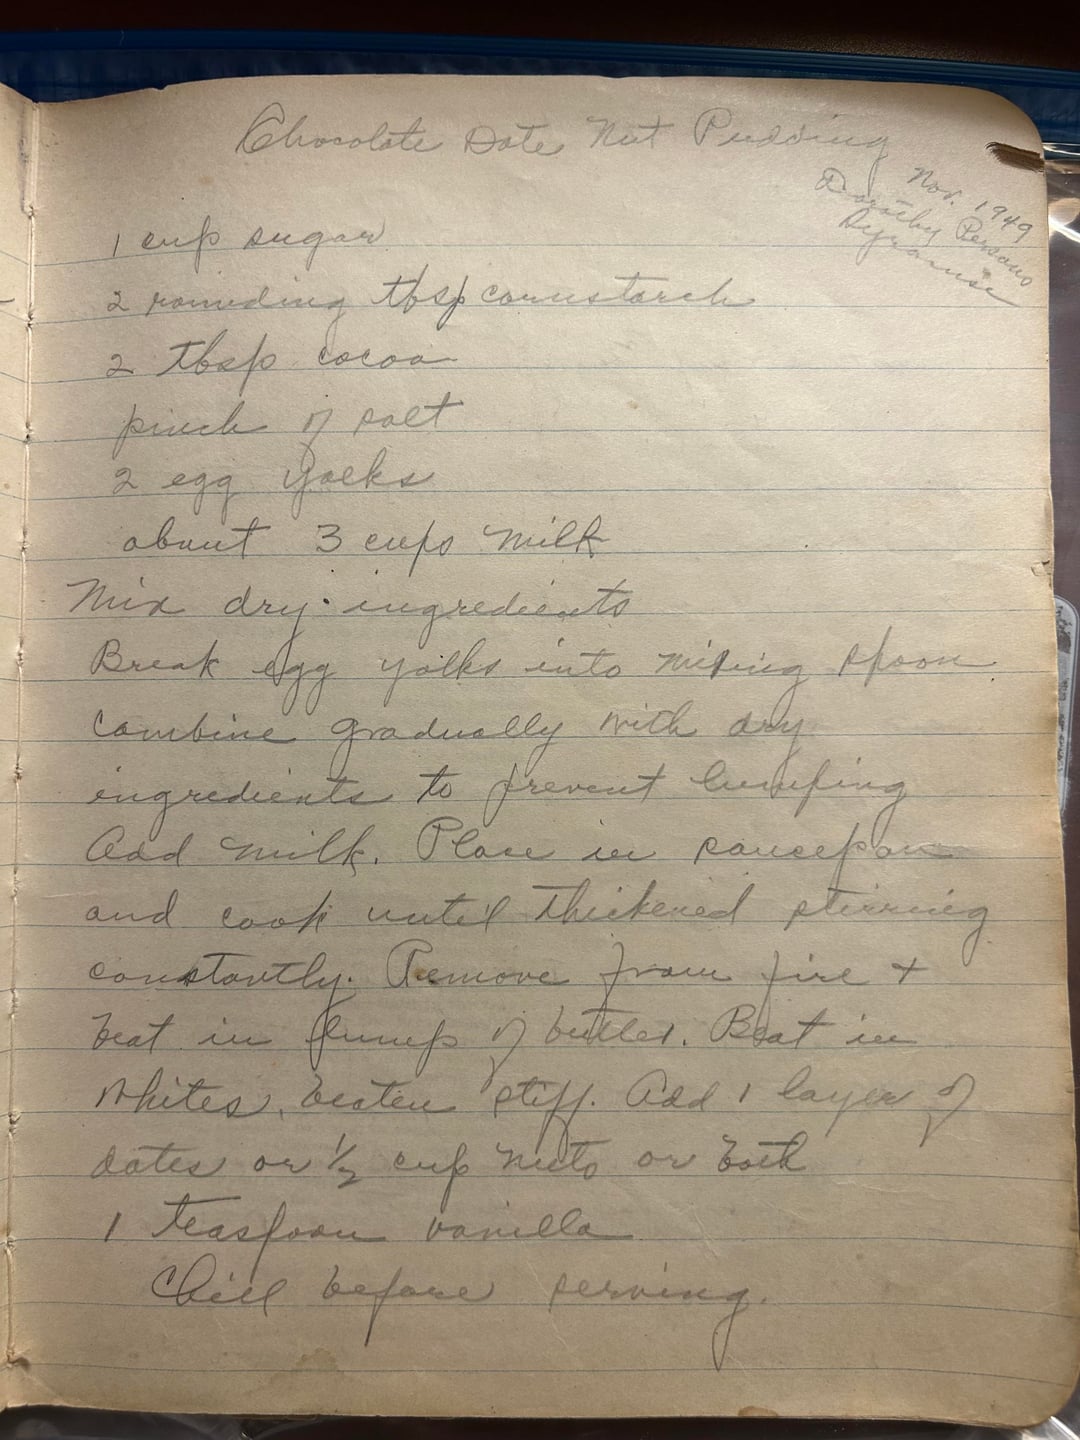 Chocolate Date Nut Pudding
Nov. 1949
Dorothy Persons
Syracuse
1 cup sugar
2 rounding tbsp cornstarch
2 tbsp cocoa
pinch of salt
2 egg yolks
about 3 cups milk
Mix dry ingredients
Break egg yolks into mixing spoon
combine gradually with dry
ingredients to prevent lumping
Add milk. Place in saucepan
and cook until thickened stirring
constantly. Remove from fire +
beat in lump of butter. Beat in
whites, beaten stiff. Add 1 layer of
dates or 1/2 cup nuts or both
1 teaspoon vanilla
Chill before serving.